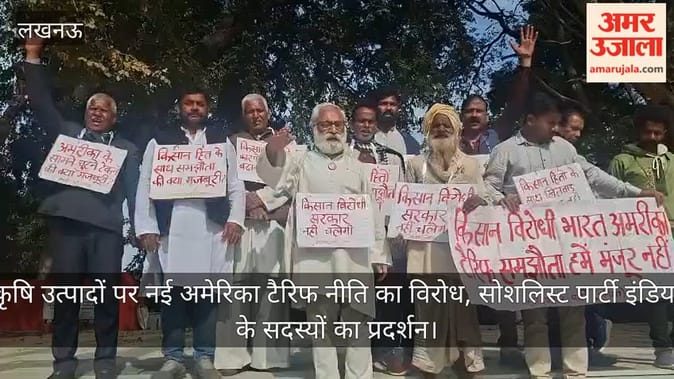 लखनऊ
अमर
उजाला
amarujala.com
अमरीका के
सामने घुटने टेकने
की क्या मजबूरी?
किसान हित के
साथ समझौता
की क्या मजबूरी?
किसान विरोधी
सरकार
नहीं चलेगी
किसान विरोधी
सरकार
नहीं चलेगी
किसान हित के
किसान विरोधी भारत अमरीका
टैरिफ समझौता हमें मंजूर नहीं
कृषि उत्पादों पर नई अमेरिका टैरिफ नीति का विरोध, सोशलिस्ट पार्टी इंडिय
के सदस्यों का प्रदर्शन।